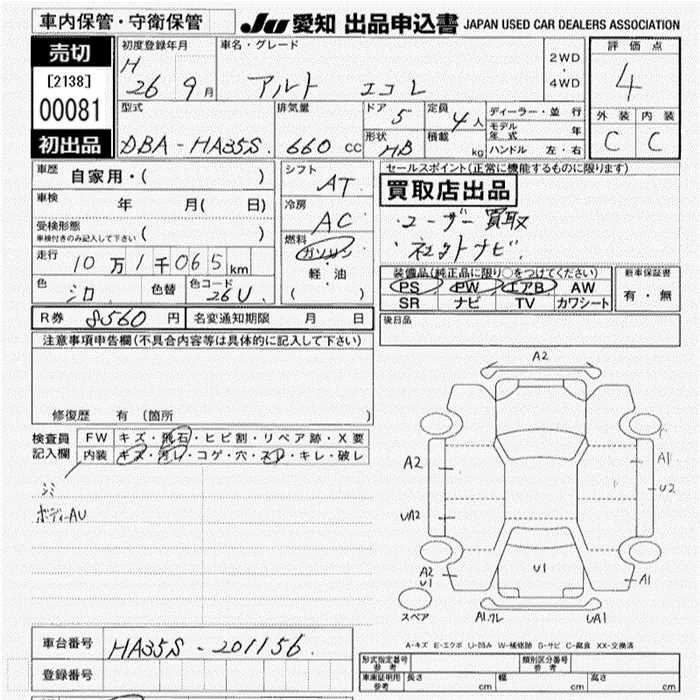 車内保管・守衛保管
JU 愛知 出品申込書 JAPAN USED CAR DEALERS ASSOCIATION
売切
[2138]
00081
初出品
初度登録年月
H 26 9月
車名・グレード
アルト エコL
2WD
・
4WD
評価点
4
外装 内装
C C
型式
DBA-HA35S
排気量
660 cc
ドア 5
形状 HB
定員 4人
積載 kg
ディーラー・並行
モデル年式 年
ハンドル 左・右
車歴 自家用・( )
車検 年 月( 日)
受検形態
車検付きのみ記入して下さい ( )
走行 10万1千065km
色 シロ 色替 色コード 26U
シフト AT
冷房 AC
燃料
ガソリン
軽・油
( )
セールスポイント(正常に機能するものに限ります)
買取店出品
・ユーザー買取
・社外ナビ
装備品(純正品に限り○をつけてください)
PS PW エアB AW
SR ナビ TV カワシート
新車保証書
有・無
R券 8560円 名変通知期限 月 日
後日品
注意事項申告欄(不具合内容等は具体的に記入して下さい)
修復歴 有 (箇所 )
検査員
記入欄
FW キズ・飛石・ヒビ割・リペア跡・X要
内装 キズ・汚レ・コゲ・穴・スレ・キレ・破レ
シミ
ボディーAU
A2
A2
UA2
A2
U1
A1
U2
A1
U1
スペア
A1.ワレ
UA1
A-キズ E-エクボ U-凹み W-補修跡 S-サビ C-腐食 XX-交換済
車台番号 HA35S-201156
登録番号
型式指定番号
参考
類別区分番号
参考
車庫証明用
参考
長さ cm 幅 cm 高さ cm